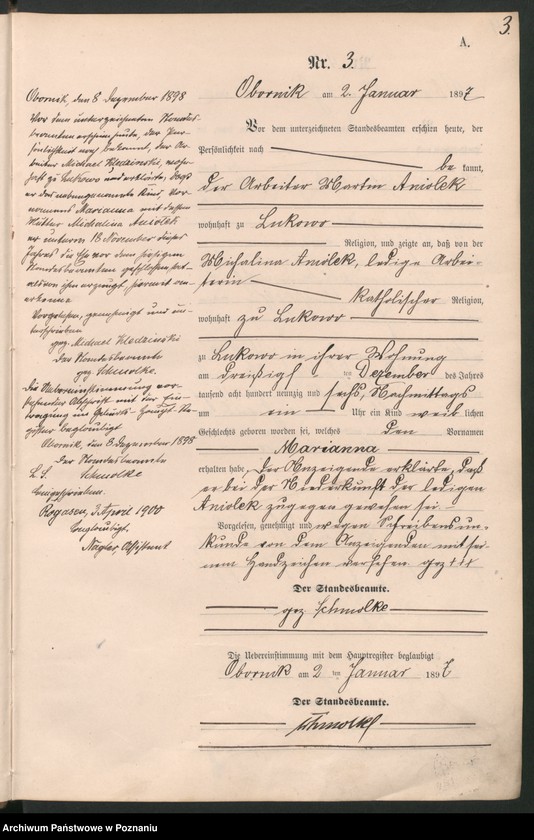 3.
A.
Nr. 3.
Obornik am 2. Januar 1897
Vor dem unterzeichneten Standesbeamten erschien heute, der
Persönlichkeit nach
be kannt,
der Arbeiter Martin Aniolek
wohnhaft zu Lukowo
Religion, und zeigte an, daß von der
Michalina Aniolek, ledige Arbei-
terin
katholischer Religion,
wohnhaft zu Lukowo
zu Lukowo in ihrer Wohnung
am dreißigsten Dezember des Jahres
tausend acht hundert neunzig und sechs, Nachmittags
um ein Uhr ein Kind weib lichen
Geschlechts geboren worden sei, welches den Vornamen
Marianna
erhalten habe. Der Anzeigende erklärte, daß
er bei der Niederkunft der ledigen
Aniolek zugegen gewesen sei
Vorgelesen, genehmigt und wegen Schreibensun-
kunde von dem Anzeigenden mit sei-
nem Handzeichen versehen gez +++
Der Standesbeamte.
gez Schmolke
Die Uebereinstimmung mit dem Hauptregister beglaubigt
Obornik am 2 ten Januar 1897
Der Standesbeamte.
Schmolke
Obornik, den 8 Dezember 1898
Vor dem unterzeichneten Standes-
beamten erschien heute, der Per-
sönlichkeit nach bekannt, der Ar-
beiter Michael Kledzinski, wohn-
haft zu Lukowo und erklärte, daß
er das nebengenannte Kind, Vor-
namens Marianna mit dessen
Mutter Michalina Aniolek
er unterm 16 November dieses
Jahres die Ehe vor dem hiesigen
Standesbeamten geschlossen hat
als von ihm erzeugt, hiermit an-
erkenne
Vorgelesen, genehmigt und un-
terschrieben
gez. Michael Kledzinski
Der Standesbeamte
gez. Schmolke.
Die Uebereinstimmung vor-
stehender Abschrift mit der Ein-
tragung im Geburts-Haupt-Re-
gister beglaubigt
Obornik, den 8 Dezember 1898
Der Standesbeamte
L. S. Schmolke
beigeschrieben.
Rogasen, 3 April 1900
Beglaubigt.
Assistent
Archiwum Państwowe w Poznaniu